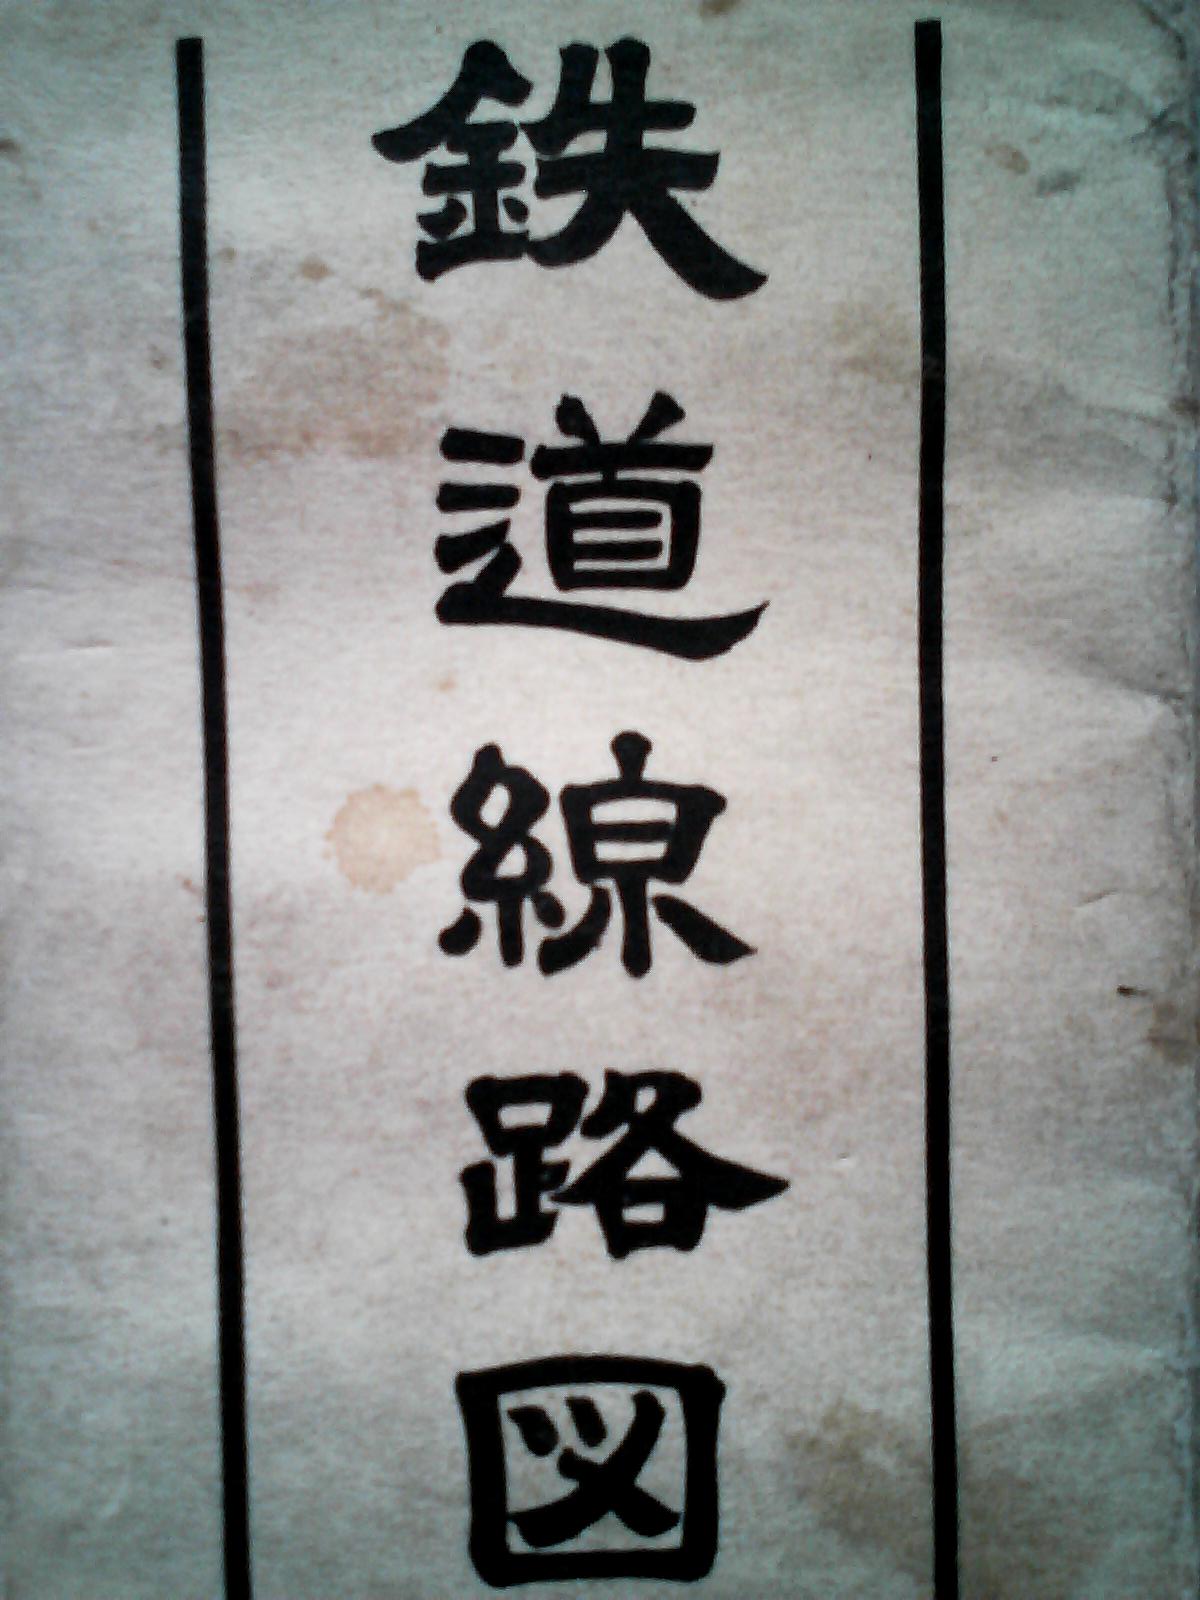 鉄道線路図